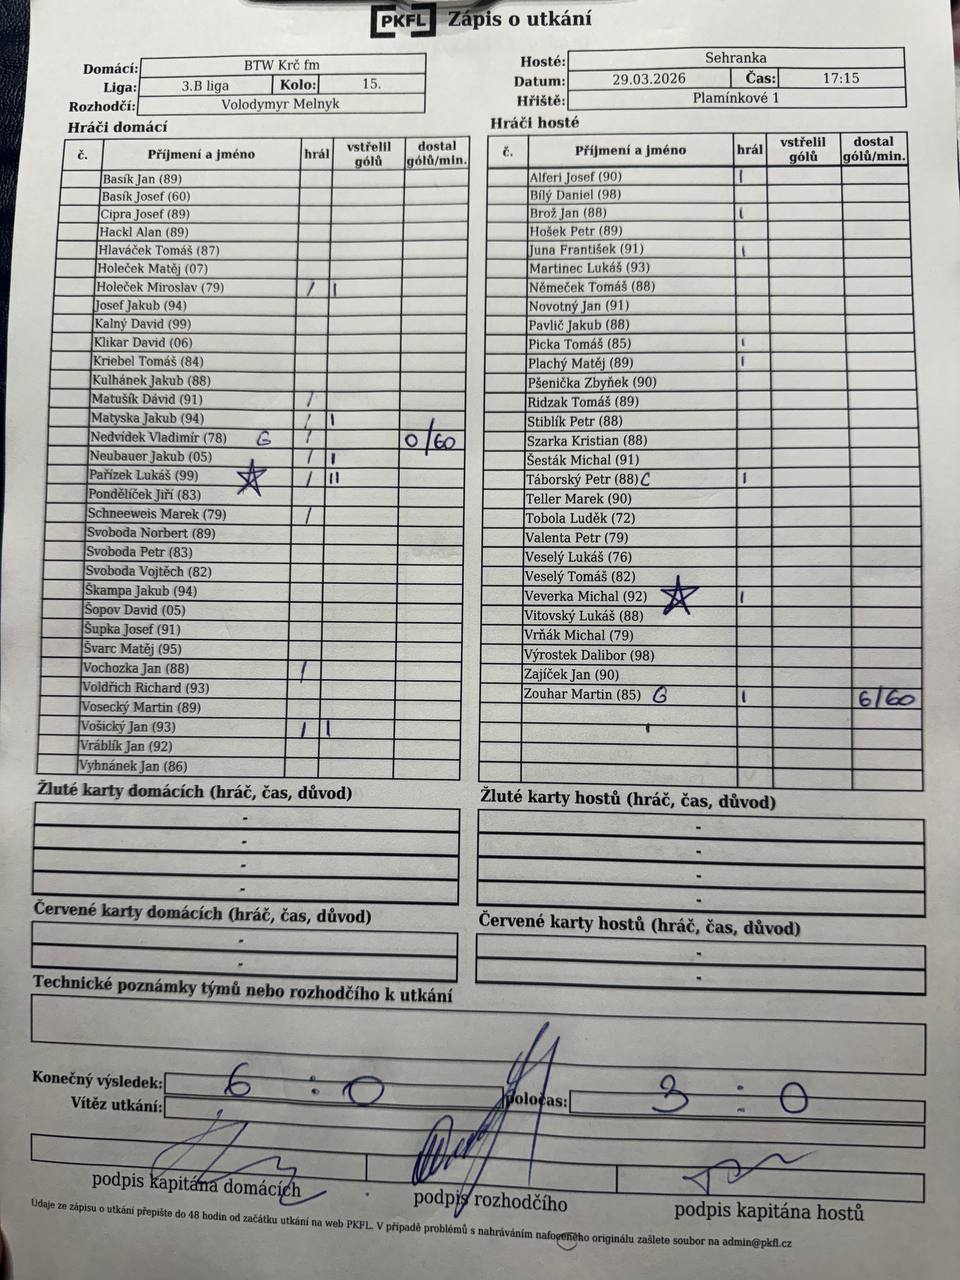 PKFL Zápis o utkání
Domácí: BTW Krč fm
Liga: 3.B liga Kolo: 15.
Rozhodčí: Volodymyr Melnyk
Hosté: Sehranka
Datum: 29.03.2026 Čas: 17:15
Hřiště: Plamínkové 1
Hráči domácí
č. Příjmení a jméno hrál vstřelil gólů dostal gólů/min.
Basík Jan (89)
Basík Josef (60)
Cipra Josef (89)
Hackl Alan (89)
Hlaváček Tomáš (87)
Holeček Matěj (07)
Holeček Miroslav (79) / I
Josef Jakub (94)
Kalný David (99)
Klikar David (06)
Kriebel Tomáš (84)
Kulhánek Jakub (88)
Matušík Dávid (91) /
Matyska Jakub (94) / I
Nedvídek Vladimír (78) G / 0/60
Neubauer Jakub (05) / I
Pařízek Lukáš (99) / II
Pondělíček Jiří (83)
Schneeweis Marek (79) /
Svoboda Norbert (89)
Svoboda Petr (83)
Svoboda Vojtěch (82)
Škampa Jakub (94)
Šopov David (05)
Šupka Josef (91)
Švarc Matěj (95)
Vochozka Jan (88) /
Voldřich Richard (93)
Vosecký Martin (89)
Vošický Jan (93) I I
Vráblík Jan (92)
Vyhnánek Jan (86)
Hráči hosté
č. Příjmení a jméno hrál vstřelil gólů dostal gólů/min.
Alferi Josef (90) I
Bílý Daniel (98)
Brož Jan (88) I
Hošek Petr (89)
Juna František (91) I
Martinec Lukáš (93)
Němeček Tomáš (88)
Novotný Jan (91)
Pavlič Jakub (88)
Picka Tomáš (85) I
Plachý Matěj (89) I
Pšenička Zbyňek (90)
Ridzak Tomáš (89)
Stiblík Petr (88)
Szarka Kristian (88)
Šesták Michal (91)
Táborský Petr (88) C I
Teller Marek (90)
Tobola Luděk (72)
Valenta Petr (79)
Veselý Lukáš (76)
Veselý Tomáš (82)
Veverka Michal (92) I
Vitovský Lukáš (88)
Vrňák Michal (79)
Výrostek Dalibor (98)
Zajíček Jan (90)
Zouhar Martin (85) G I 6/60
Žluté karty domácích (hráč, čas, důvod)
-
-
-
-
Žluté karty hostů (hráč, čas, důvod)
-
-
-
-
Červené karty domácích (hráč, čas, důvod)
-
-
Červené karty hostů (hráč, čas, důvod)
-
-
Technické poznámky týmů nebo rozhodčího k utkání
Konečný výsledek: 6 : 0 poločas: 3 : 0
Vítěz utkání:
podpis kapitána domácích podpis rozhodčího podpis kapitána hostů
Údaje ze zápisu o utkání přepište do 48 hodin od začátku utkání na web PKFL. V případě problémů s nahráváním nafoceného originálu zašlete soubor na admin@pkfl.cz